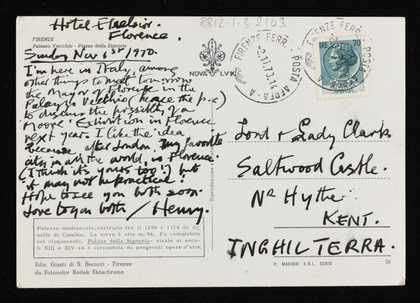 Hotel Excelsior.
Florence.
8812-1-3 2103
FIRENZE
Palazzo Vecchio - Piazza della Signoria
Sunday Nov 1st 1970.
I'm here in Italy, among
other things to meet tomorrow
the Mayor of Florence in the
Palazzo Vecchio (hence the p.c)
to discuss the possibility of a
Moore Exhibition in Florence
next year. I like the idea
because, after London, my favourite
city in all the world, is Florence.
(I think it's yours too) but
it may not be practical.
Hope to see you both soon.
Love to you both / Henry.
Palazzo medioevale, costruito fra il 1298 e 1314 da
nolfo di Cambio. La torre è alta m. 94. Fu completato
nel cinquecento. Piazza della Signoria: risale ai secoli
XIII e XIV ed è circondata da pregevoli opere d'arte.
Ediz. Giusti di S. Becocci - Firenze
da Fotocolor Kodak Ektachrome
NOVA LUX
Riproduzione
FIRENZE FERR.
POSTA AEREA
2.11.70.14
FIRENZE FERR.
POSTA
70
Lord & Lady Clark
Saltwood Castle.
Nr Hythe
KENT.
INGHILTERRA.